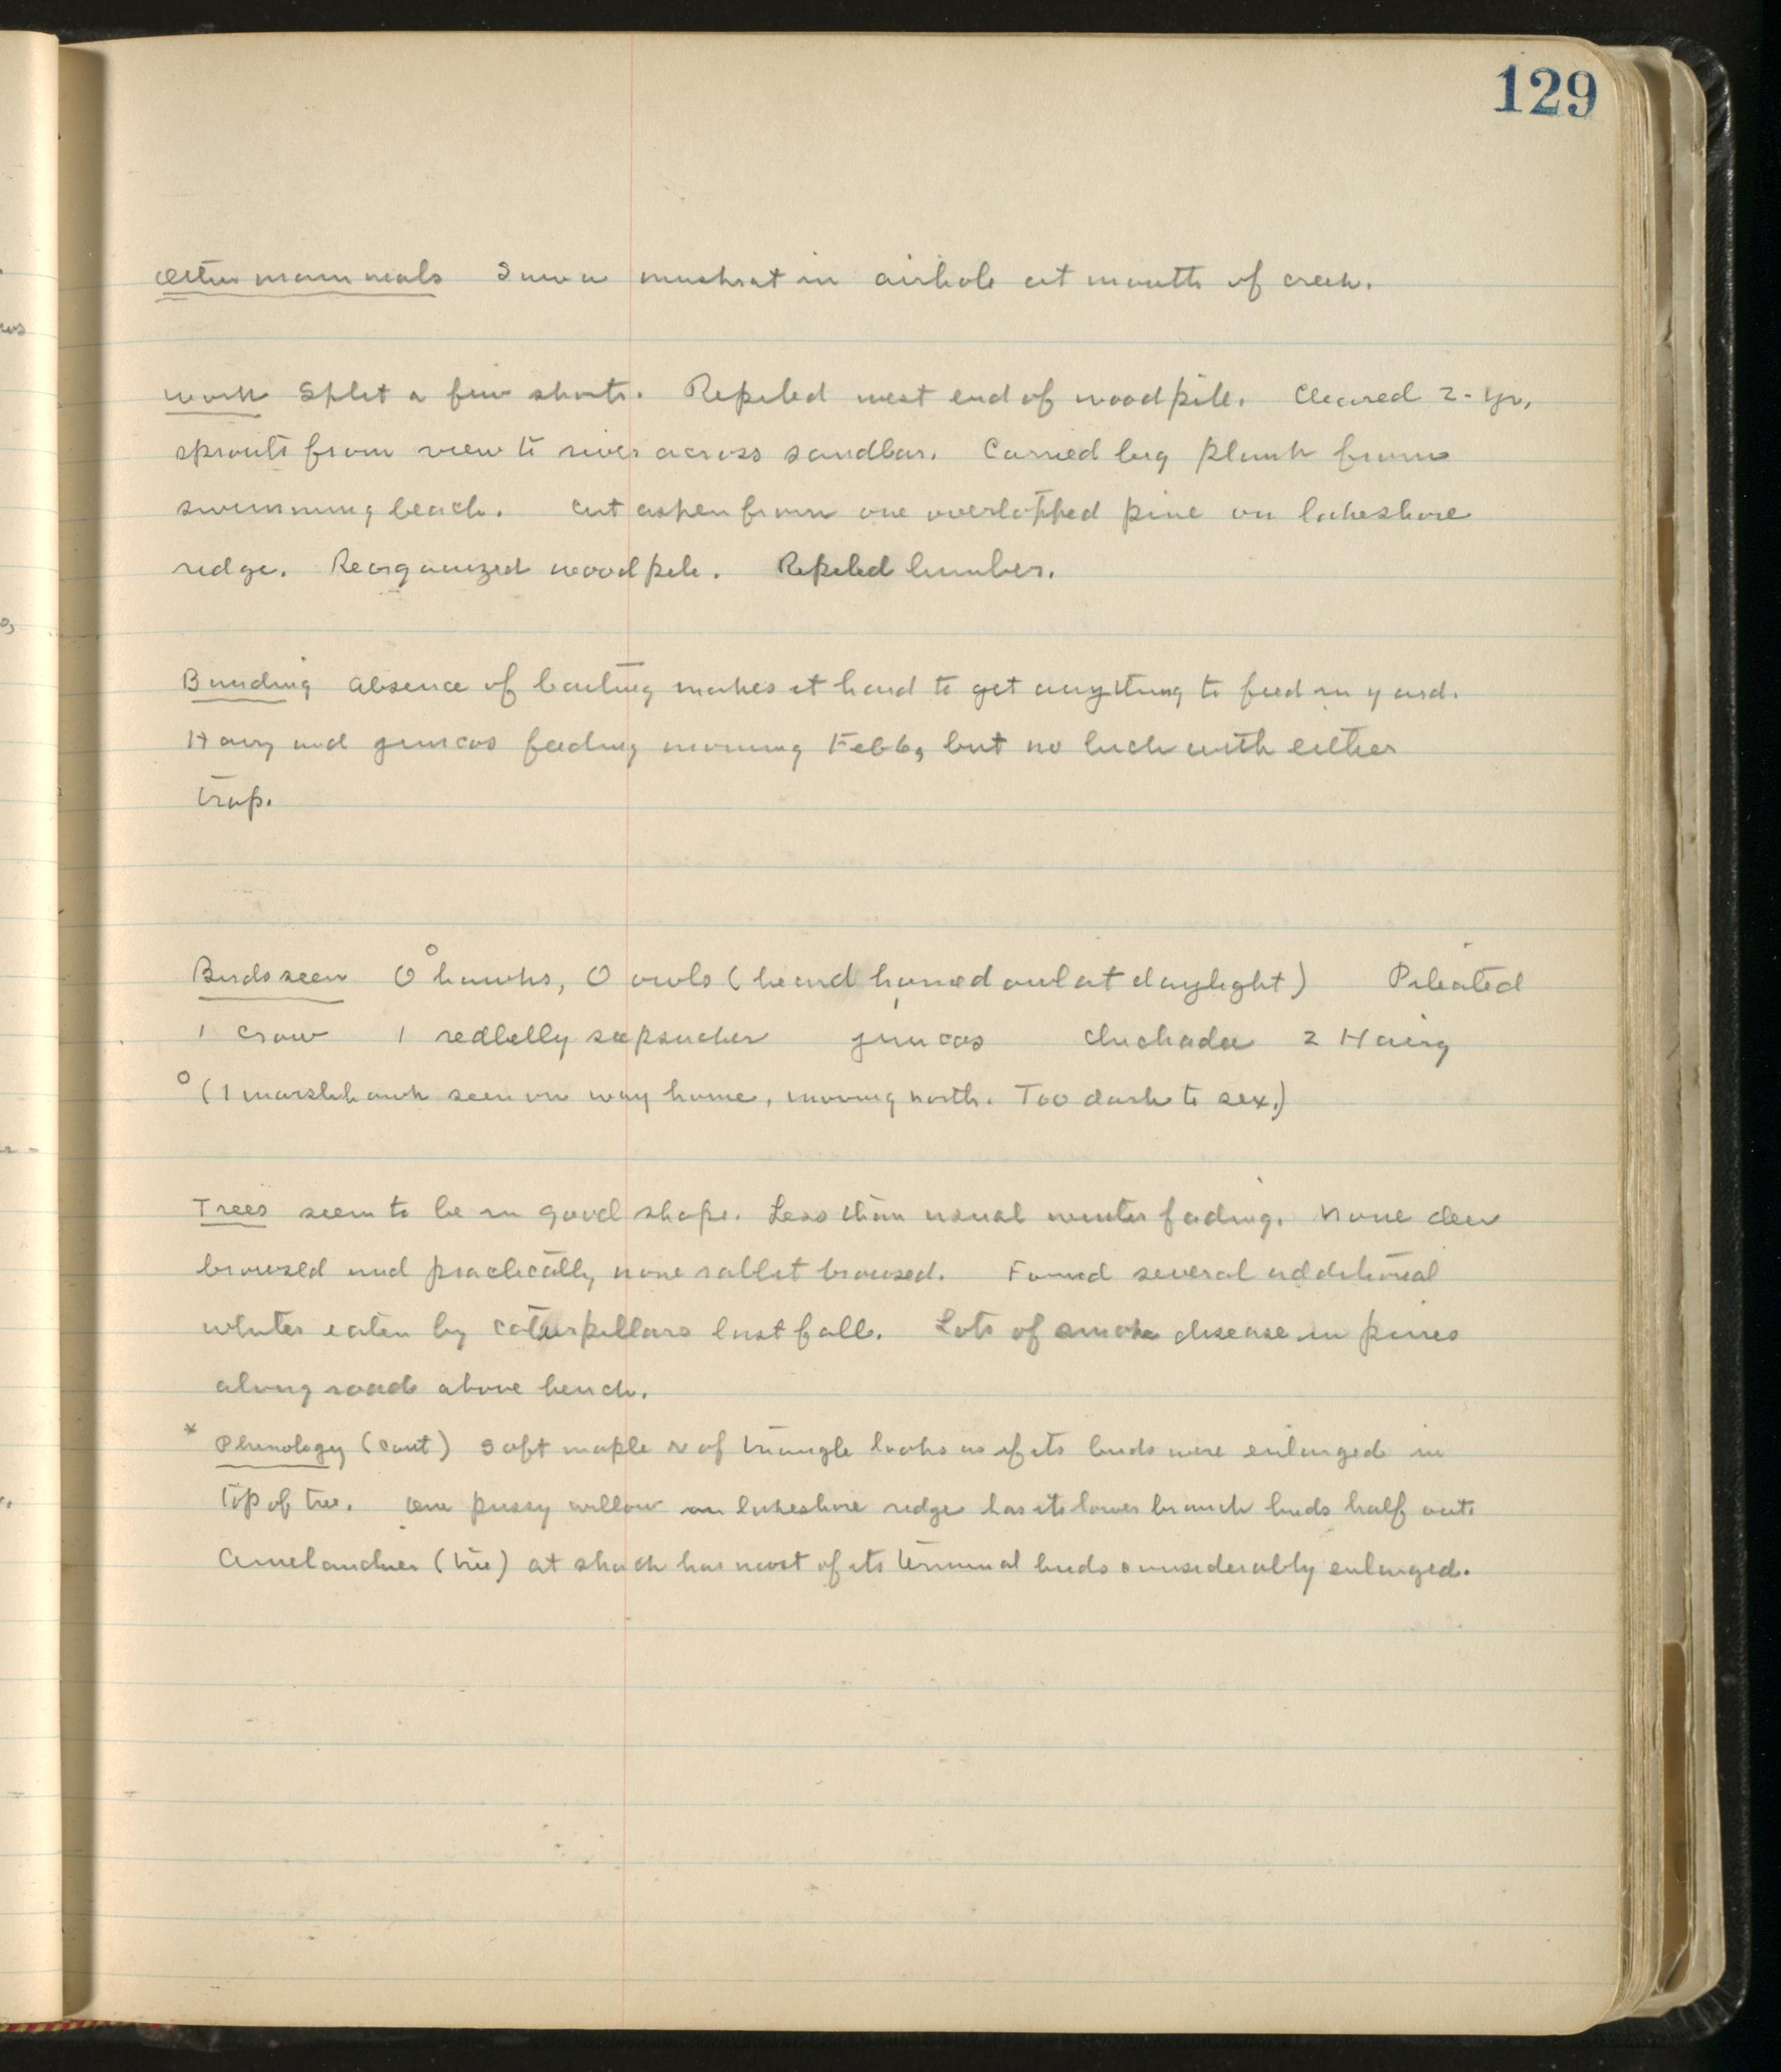 129
Other mammals Saw a muskrat in airhole at mouth of creek.
Work Split a few shorts. Repiled west end of woodpile. Cleared 2-yr.
sprouts from view to river across sandbar. Carried big plank from
swimming beach. Cut aspen from one overtopped pine on lakeshore
ridge. Reorganized woodpile. Repiled lumber.
Banding Absence of baiting makes it hard to get anything to feed in yard.
Hairy and juncos feeding morning Feb 6, but no luck with either
trap.
Birds seen 0° hawks, 0 owls (heard horned owl at daylight) Pileated
1 crow 1 redbelly sapsucker juncos chickadee 2 Hairy
° (1 marshhawk seen on way home, moving north. Too dark to sex.)
Trees seem to be in good shape. Less than usual winter fading. None deer
browsed and practically none rabbit browsed. Found several additional
whites eaten by caterpillars last fall. Lots of smoke disease in pines
along road above bench.
* Phenology (cont) Soft maple N of triangle looks as if its buds were enlarged in
top of tree. One pussy willow on lakeshore ridge has its lower branch buds half out.
Amelanchier (tree) at shack has most of its terminal buds considerably enlarged.